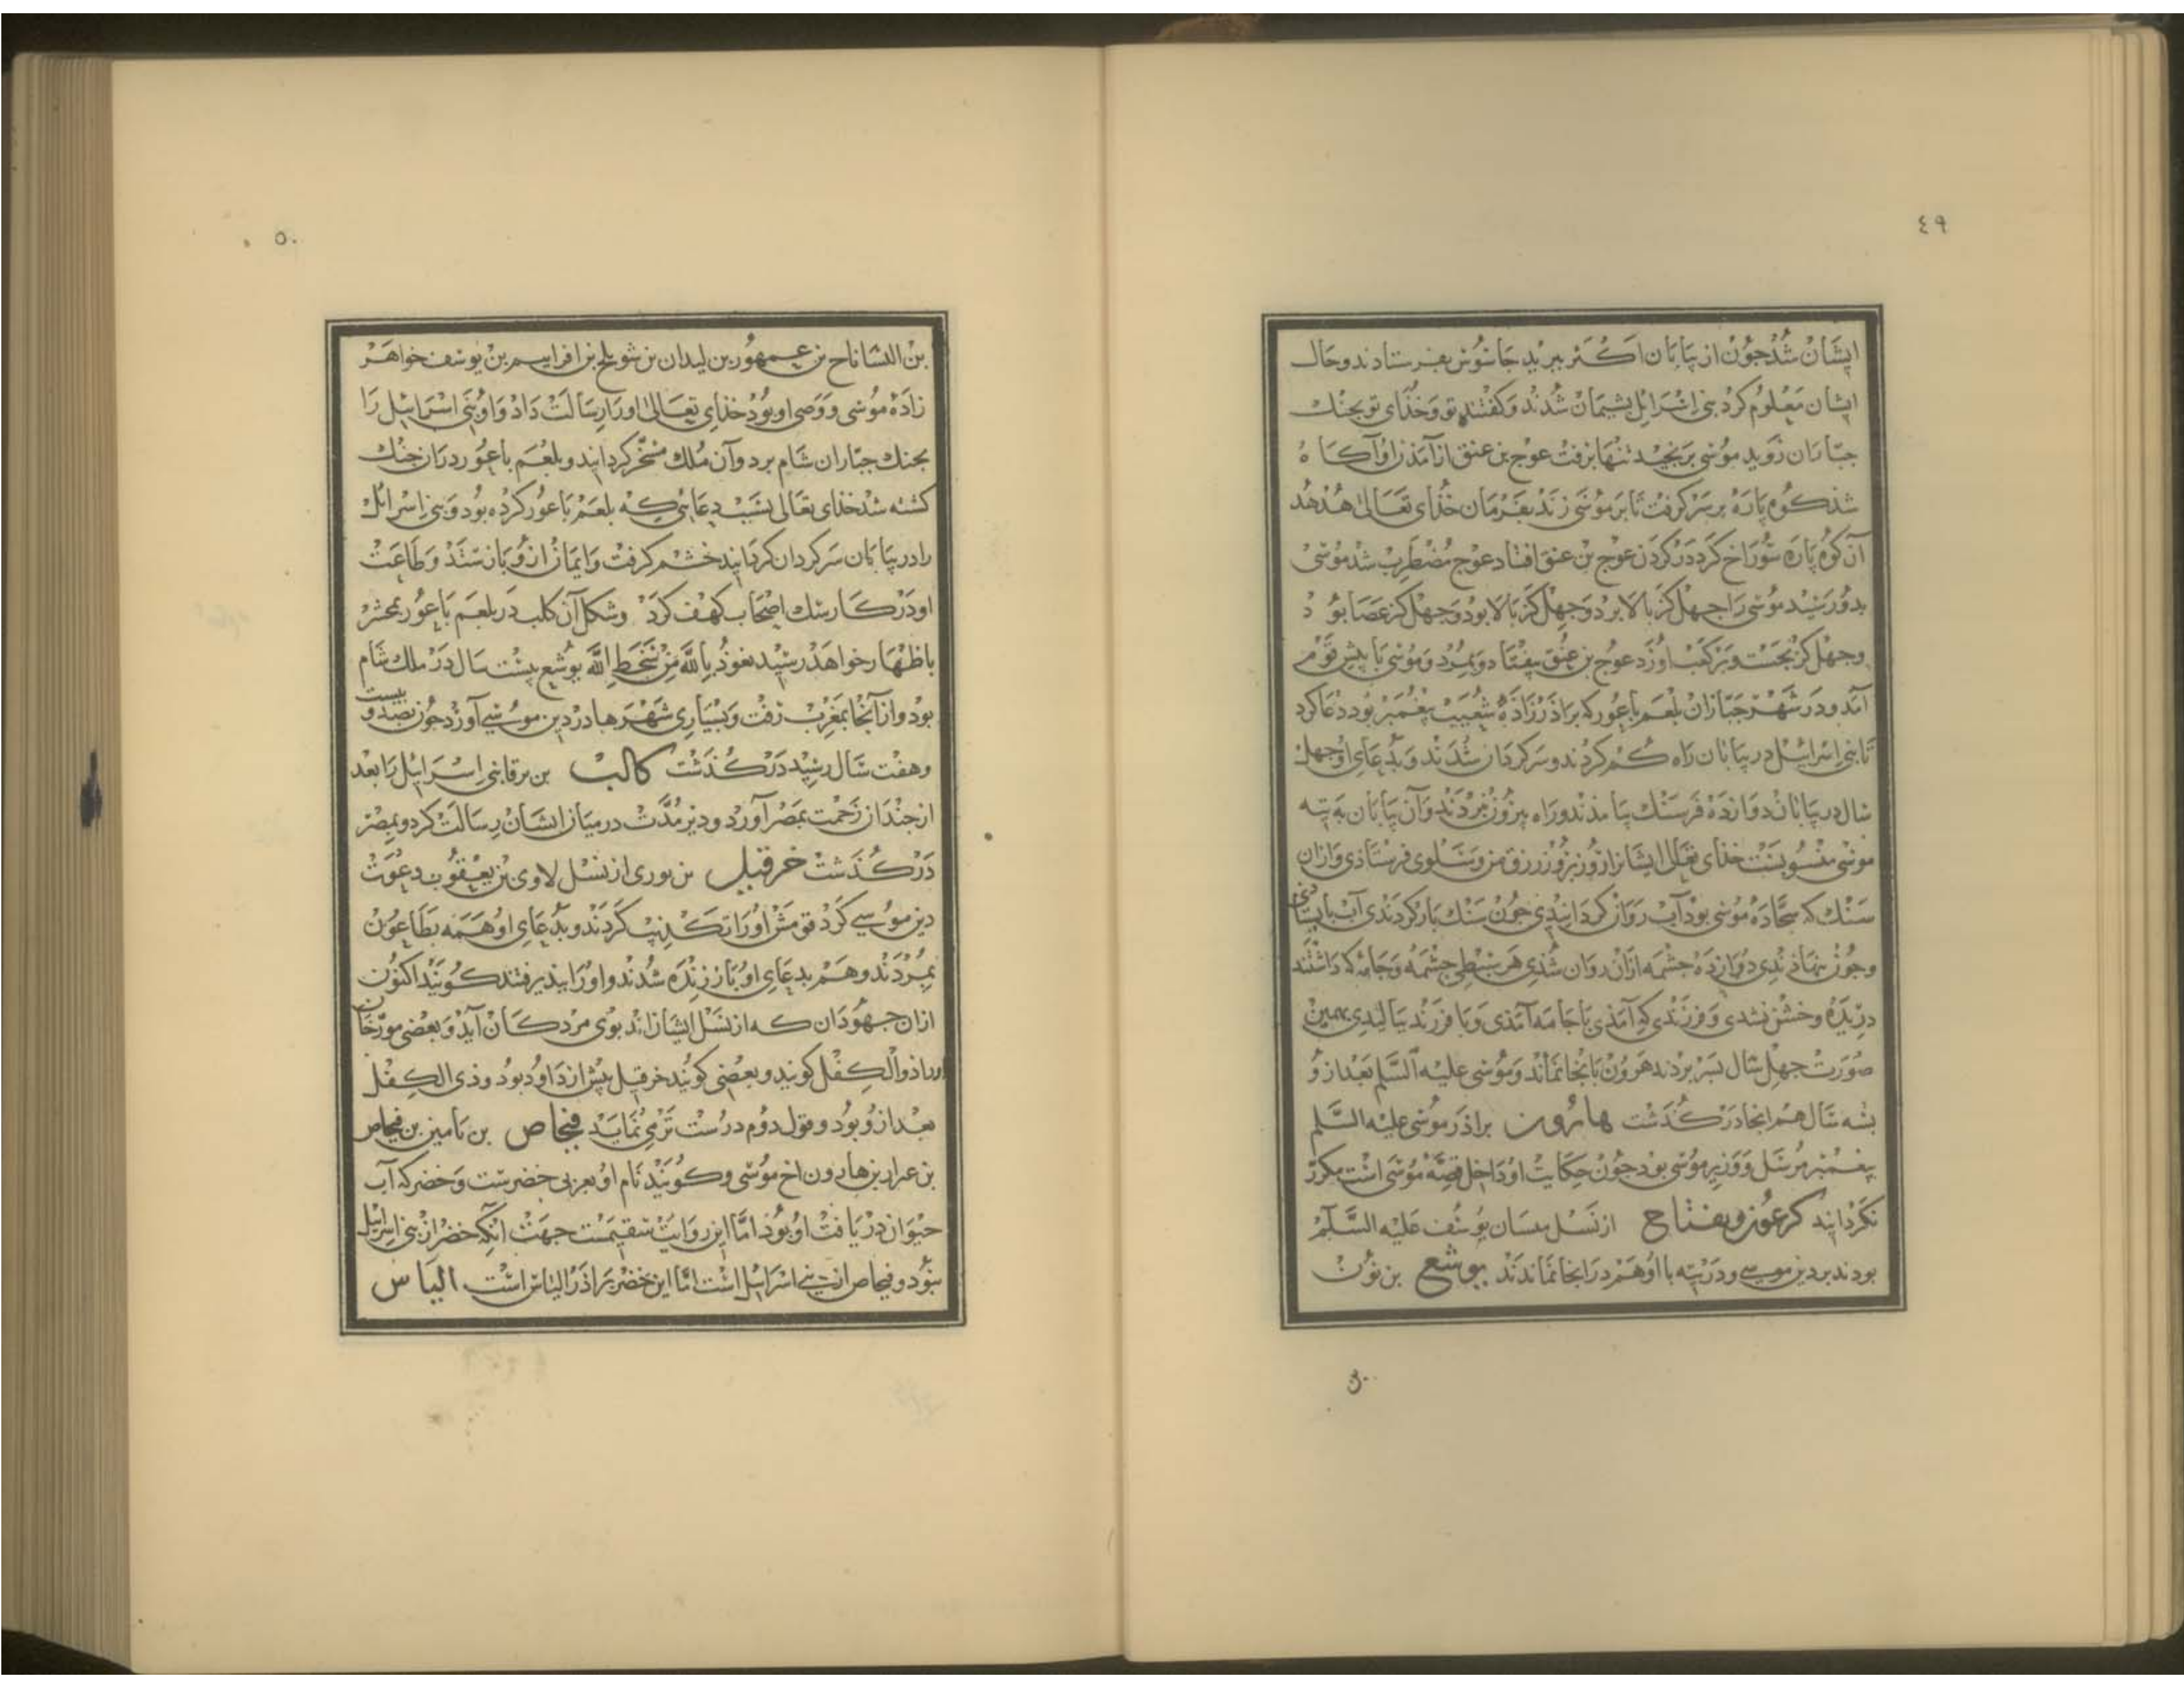 ٤٩
ایشان شد جون از بیابان اکثر ببرید جاسوس بفرستادند و حال
ایشان معلوم کرد بنی اسرایل بشیمان شدند و کفتند تو و خذای تو بجنک
جباران روید موسی برنجید تنها برفت عوج بن عنق از آمذن او آکاه
شد کوه باره بر سر کرفت تا بر موسی زند بفرمان خذای تعالی هدهد
آن کوه باره سوراخ کرد در کردن عوج بن عنق افتاد عوج مضطرب شد موسی
بدو رسید موسی را جهل کز بالا بود و جهل کز بالا بود و جهل کز عصا بود
و جهل کز بجست و بر کعب او زد عوج بن عنق بیفتاد و بمرد و موسی با بیش قوم
آمد و در شهر جباران بلعم باعور که براذرزاذهٔ شعیب بیغمبر بود دعا کرد
تا بنی اسرایل در بیابان راه کم کردند و سرکردان شدند و بدعای او جهل
سال در بیابان دوازده فرسنک بیامذند و راه بیرون نبردند و آن بیابان به تیه
موسی منسوبست خذای تعالی ایشانرا روز بروز رزق من و سلوی فرستاذی و از آن
سنک که سجاده موسی بود آب روان کردانیدی جون سنک بار کردندی آب بایستادی
و جون بنهاذندی دوازده جشمه ازان روان شذی هر سبطی جشمه و جامه که داشتند
دریده و خشن نشدی و فرزندی که آمذی با جامه آمذی و با فرزند ببالیدی بهمین
صورت جهل سال بسر بردند هرون بانجا نماند و موسی علیه السلم بعد ازو
بسه سال هم انجا درکذشت هارون براذر موسی علیه السلم
بیغمبر مرسل و وزیر موسی بود جون حکایت او داخل قصه موسی است مکرر
نکردانید کرعوز و یفتاح از نسل یوسف علیه السلم
بودند بر دین موسی و در تیه با او هم در انجا نماندند یوشع بن نون
٥٠
بن الشاناح بن عمیهور بن لیدان بن شویلح بن افراییم بن یوسف خواهر
زاده موسی و وصی او بود خذای تعالی او را رسالت داد و او بنی اسرایل را
بجنک جباران شام برد و آن ملک مسخر کردانید و بلعم باعور در ان جنک
کشته شد خذای تعالی بسبب دعائی که بلعم باعور کرده بود و بنی اسرائل
را در بیابان سرکردان کردانید خشم کرفت و ایمان ازو باز ستد و طاعت
او در کار سک اصحاب کهف کرد و شکل آن کلب در بلعم باعور بمحشر
باظهار خواهد رسید نعوذ بالله من سخط الله یوشع بیست سال در ملک شام
بود و از آنجا بمغرب رفت و بسیاری شهرها در دین موسی آورد جون بصد و بیست
و هفت سال رسید درکذشت کالب بن یرقا بنی اسرایل را بعد
از جندان زحمت بمصر آورد و دیر مدت در میان ایشان رسالت کرد و بمصر
درکذشت خرقیل بن بوری از نسل لاوی بن یعقوب دعوت
دین موسی کرد قومش او را تکذیب کردند و بدعای او همه بطاعون
بمردند و هم بدعای او باز زنده شدند و او را ببذیرفتند کویند اکنون
ازان جهودان که از نسل ایشانند بوی مردکان آید و بعضی مورخان
او را ذوالکفل کویند و بعضی کویند خرقیل بیش از داود بود و ذی الکفل
بعد ازو بود و قول دوم درست تر می نماید فنحاص بن یامین بن فیحاص
بن عرار بن هارون اخ موسی و کویند نام او بعربی خضرست و خضر که آب
حیوان دریافت او بود اما این روایت سقیمست جهت انکه خضر از بنی اسرایل
نبود و فیحاص از بنی اسرایل است اما این خضر براذر الیاس است الیاس